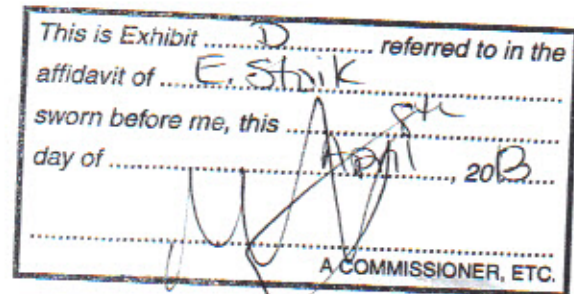 This is Exhibit ......D............ referred to in the
affidavit of ....E. Strik..............................
sworn before me, this ........8th................
day of ..................April............., 2013.....
A COMMISSIONER, ETC.